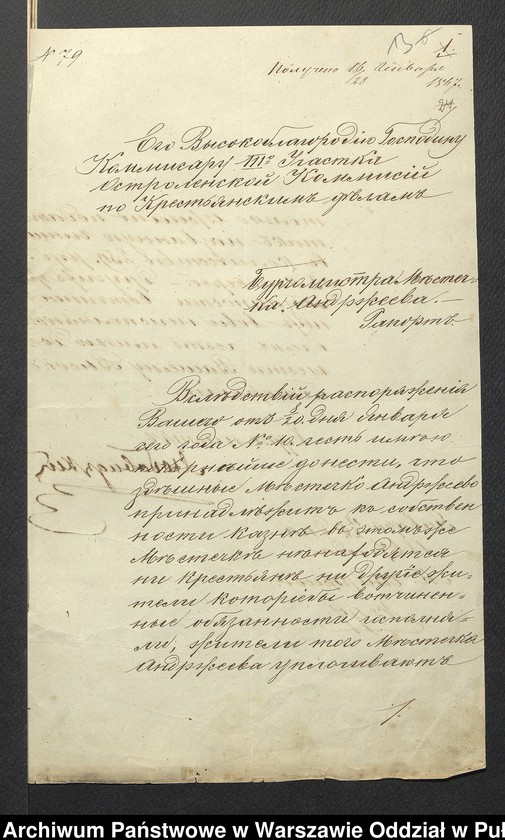 № 79
1.
Получено 16/28 Января
1867.
Его Высокоблагородію Господину
Коммисару IIIго Участка
Остроленской Коммисій
по Крестьянскимъ дѣламъ
Бургомистра Мѣстеч-
ка Андржеева.—
Рапортъ.
Вслѣдствій распоряженія
Вашего отъ 8/20 дня Января
сего года № 10. честь имѣю
донести, что
здѣшные Мѣстечко Андржеево
принадлѣжитъ къ собствен-
ности казнѣ въ этомъ же
Мѣстечкѣ ненаходятся
ни крестьянѣ ни другіе жи-
тели которіебы вотчинен-
ные обязанности исполня-
ли, жители того Мѣстечка
Андржеева уплочиваютъ
/.
Archiwum Państwowe w Warszawie Oddział w Puł